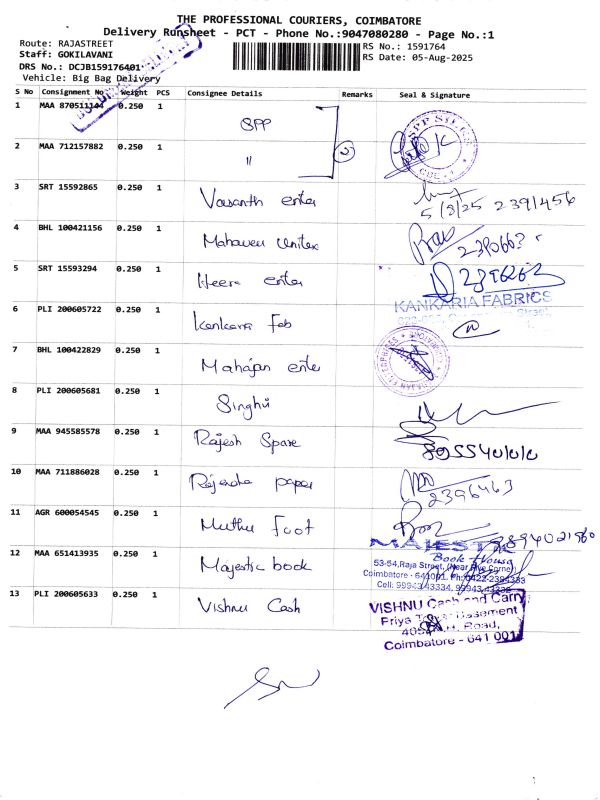 THE PROFESSIONAL COURIERS, COIMBATORE
Delivery Runsheet - PCT - Phone No.:9047080280 - Page No.:1
Route: RAJASTREET
Staff: GOKILAVANI
DRS No.: DCJB159176401
Vehicle: Big Bag Delivery
RS No.: 1591764
RS Date: 05-Aug-2025
S No Consignment No Weight PCS Consignee Details Remarks Seal & Signature
1 MAA 870511144 0.250 1 SPP
2 MAA 712157882 0.250 1 "
SPP SILKS
CBE - 1
3 SRT 15592865 0.250 1 Vasanth enter
5/8/25 2391456
4 BHL 100421156 0.250 1 Mahaveer Unitex
5 SRT 15593294 0.250 1 Heera enter
2396262
6 PLI 200605722 0.250 1 Kankaria Fab
KANKARIA FABRICS
7 BHL 100422829 0.250 1 Mahajan enter
8 PLI 200605681 0.250 1 Singhvi
9 MAA 945585578 0.250 1 Rajesh Spare
10 MAA 711886028 0.250 1 Rajendra paper
2396463
11 AGR 600054545 0.250 1 Muthu Foot
12 MAA 651413935 0.250 1 Majestic book
MAJESTIC
Book House
53-54, Raja Street, (Near Five Corner)
Coimbatore - 641001. Ph: 0422-2394333
13 PLI 200605633 0.250 1 Vishnu Cash
VISHNU Cash and Carry
Priya Tower Basement
Road,
Coimbatore - 641 001